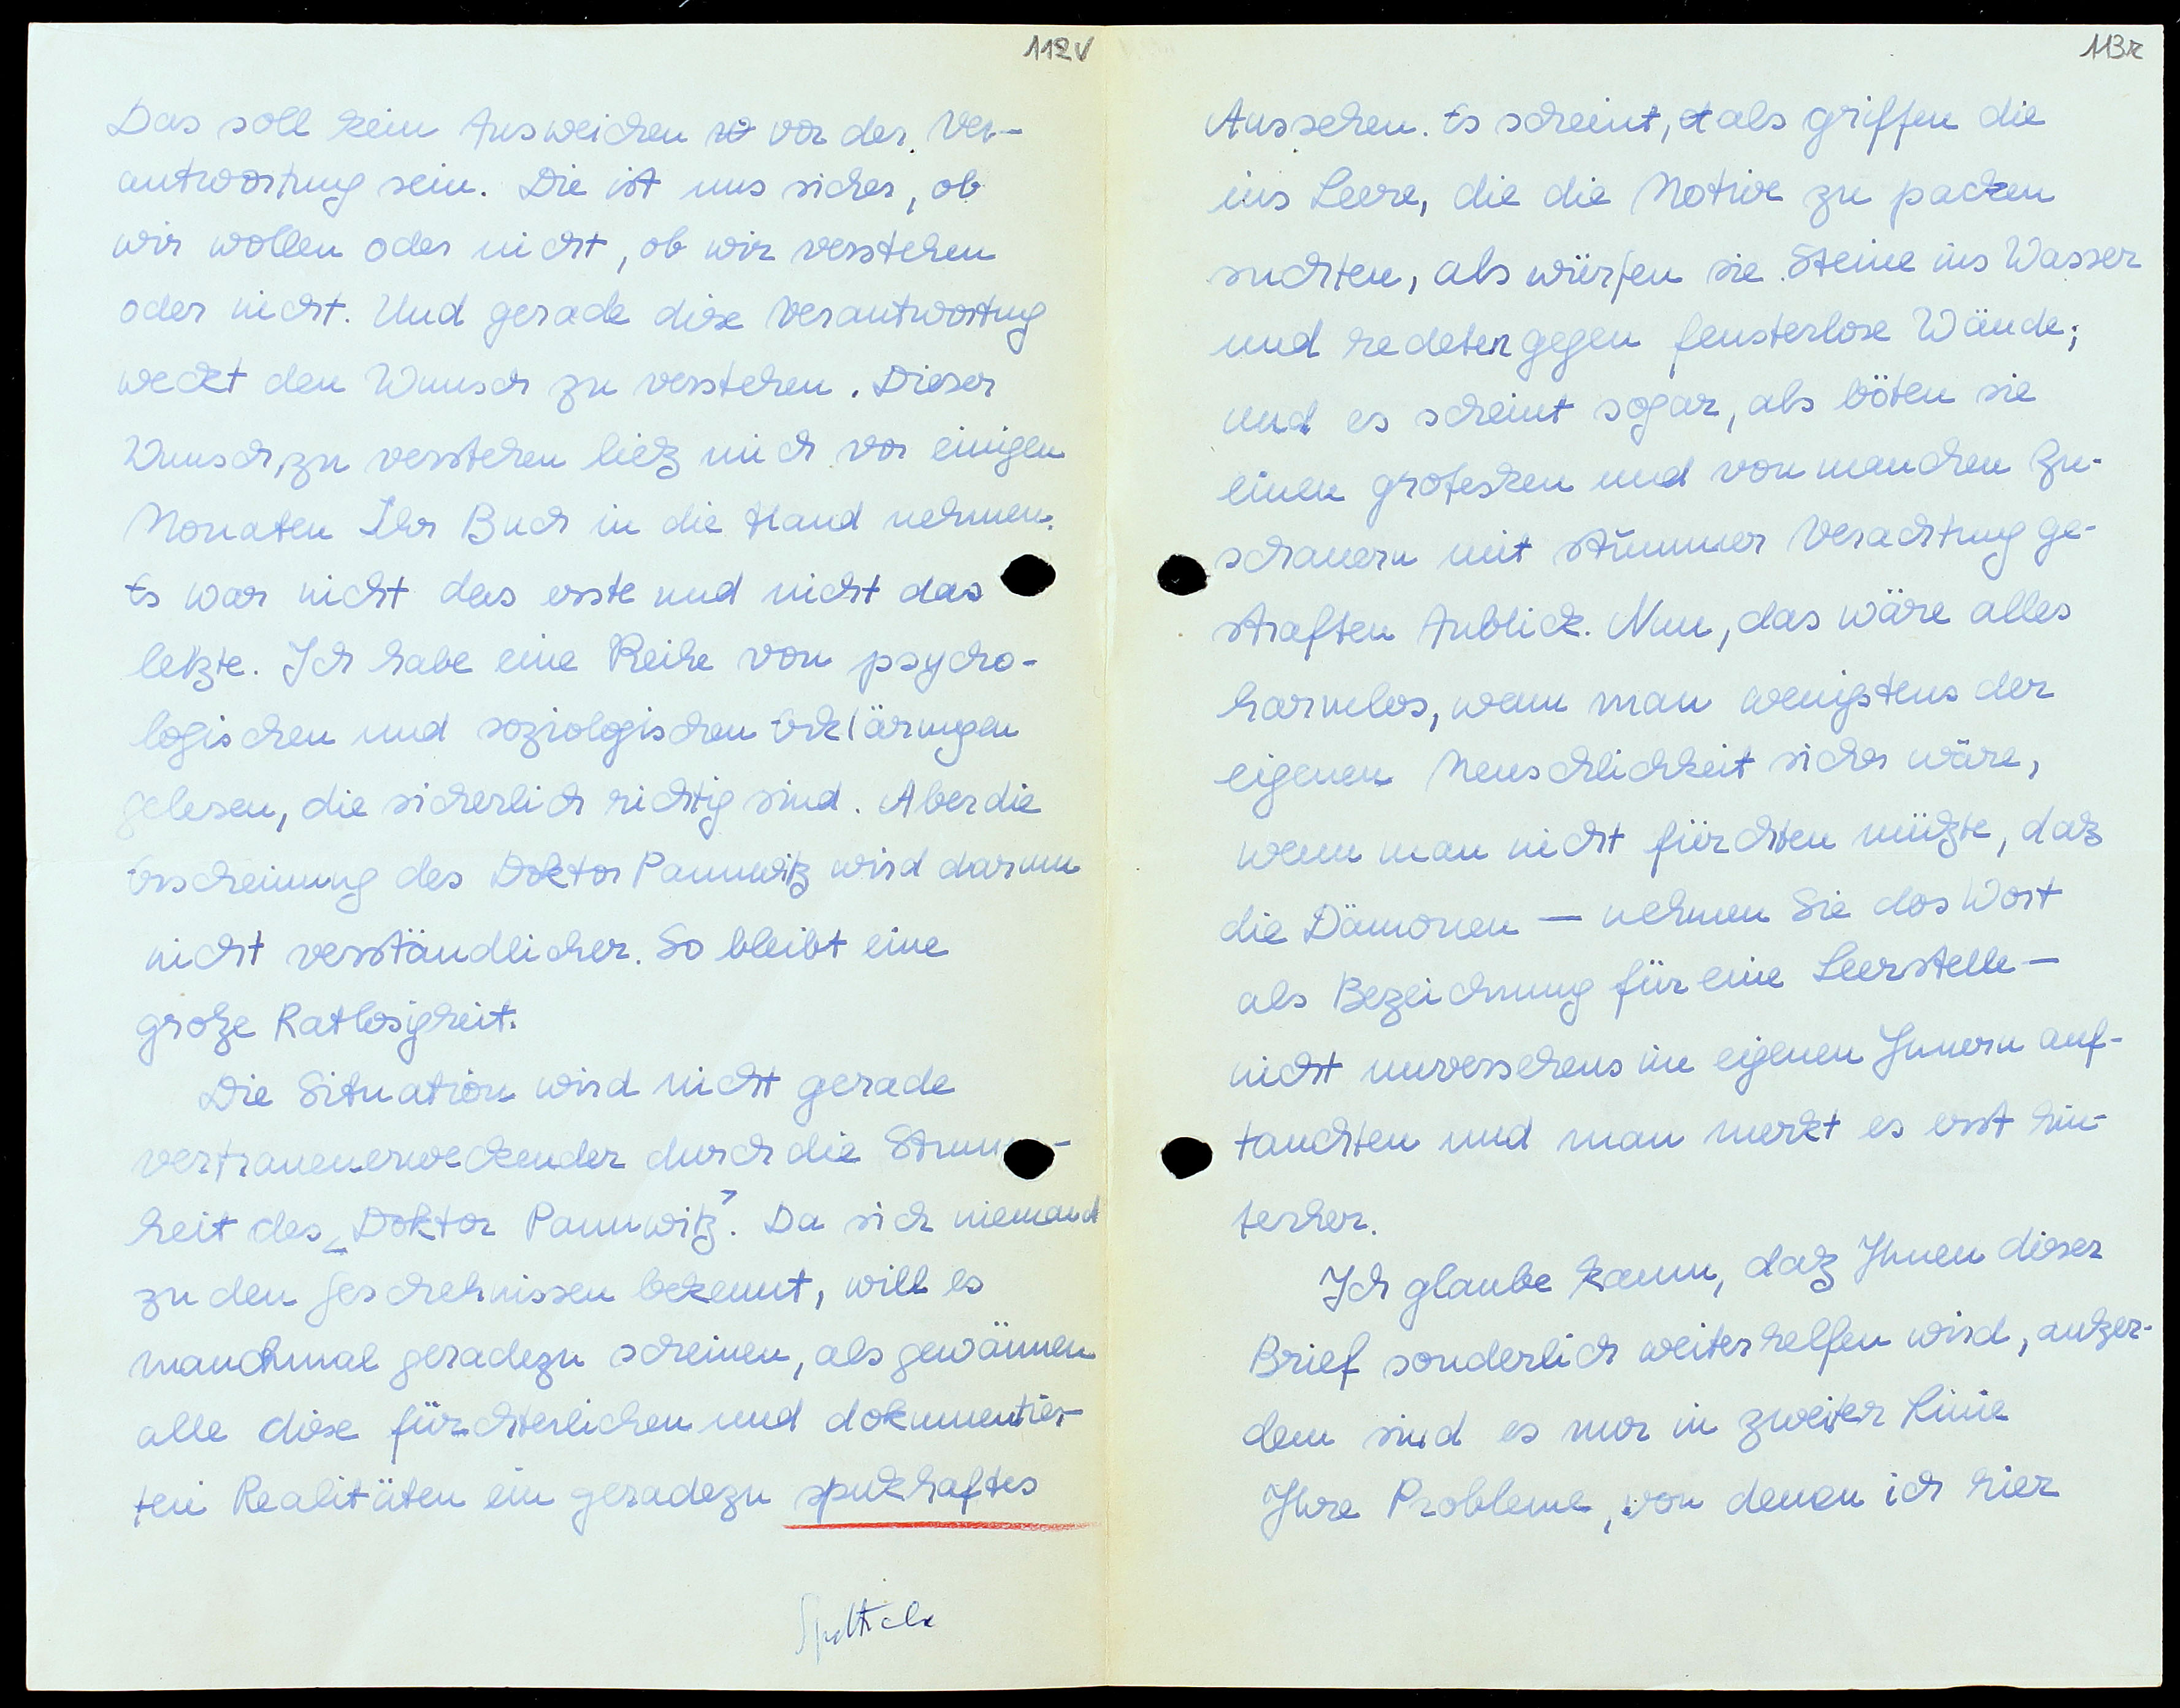 112v
Das soll kein Ausweichen vor der Ver-
antwortung sein. Die ist uns sicher, ob
wir wollen oder nicht, ob wir verstehen
oder nicht. Und gerade diese Verantwortung
weckt den Wunsch zu verstehen. Dieser
Wunsch, zu verstehen ließ mich vor einigen
Monaten Ihr Buch in die Hand nehmen.
Es war nicht das erste und nicht das
letzte. Ich habe eine Reihe von psycho-
logischen und soziologischen Erklärungen
gelesen, die sicherlich richtig sind. Aber die
Erscheinung des Doktor Pannwitz wird darum
nicht verständlicher. So bleibt eine
große Ratlosigkeit.
Die Situation wird nicht gerade
vertrauenerweckender durch die Stumm-
heit des „Doktor Pannwitz". Da sich niemand
zu den Geschehnissen bekennt, will es
manchmal geradezu scheinen, als gewännen
alle diese fürchterlichen und dokumentier-
ten Realitäten ein geradezu spukhaftes
113r
Aussehen. Es scheint, als griffen die
ins Leere, die die Motive zu packen
suchten, als würfen sie Steine ins Wasser
und redeten gegen fensterlose Wände;
und es scheint sogar, als böten sie
einen grotesken und von manchen Zu-
schauern mit stummer Verachtung ge-
straften Anblick. Nun, das wäre alles
harmlos, wenn man wenigstens der
eigenen Menschlichkeit sicher wäre,
wenn man nicht fürchten müßte, daß
die Dämonen — nehmen Sie das Wort
als Bezeichnung für eine Leerstelle —
nicht unversehens im eigenen Innern auf-
tauchten und man merkt es erst hin-
terher.
Ich glaube kaum, daß Ihnen dieser
Brief sonderlich weiterhelfen wird, außer-
dem sind es nur in zweiter Linie
Ihre Probleme, von denen ich hier